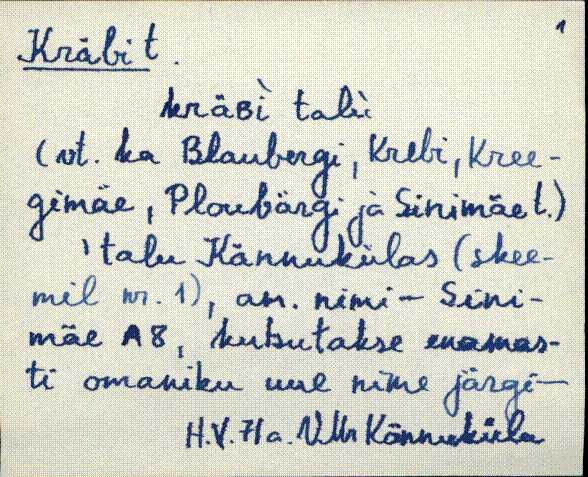 1
Kräbi t.
kräBì talù
(vt. ka Blaubergi, Krebi, Kree-
gimäe, Ploubärgi ja Sinimäe t.)
' talu Kännukülas (skee-
mil nr. 1), am. nimi - Sini-
mäe A8, kutsutakse enamas-
ti omaniku uue nime järgi—
H.V. 71a. VMr Kännuküla